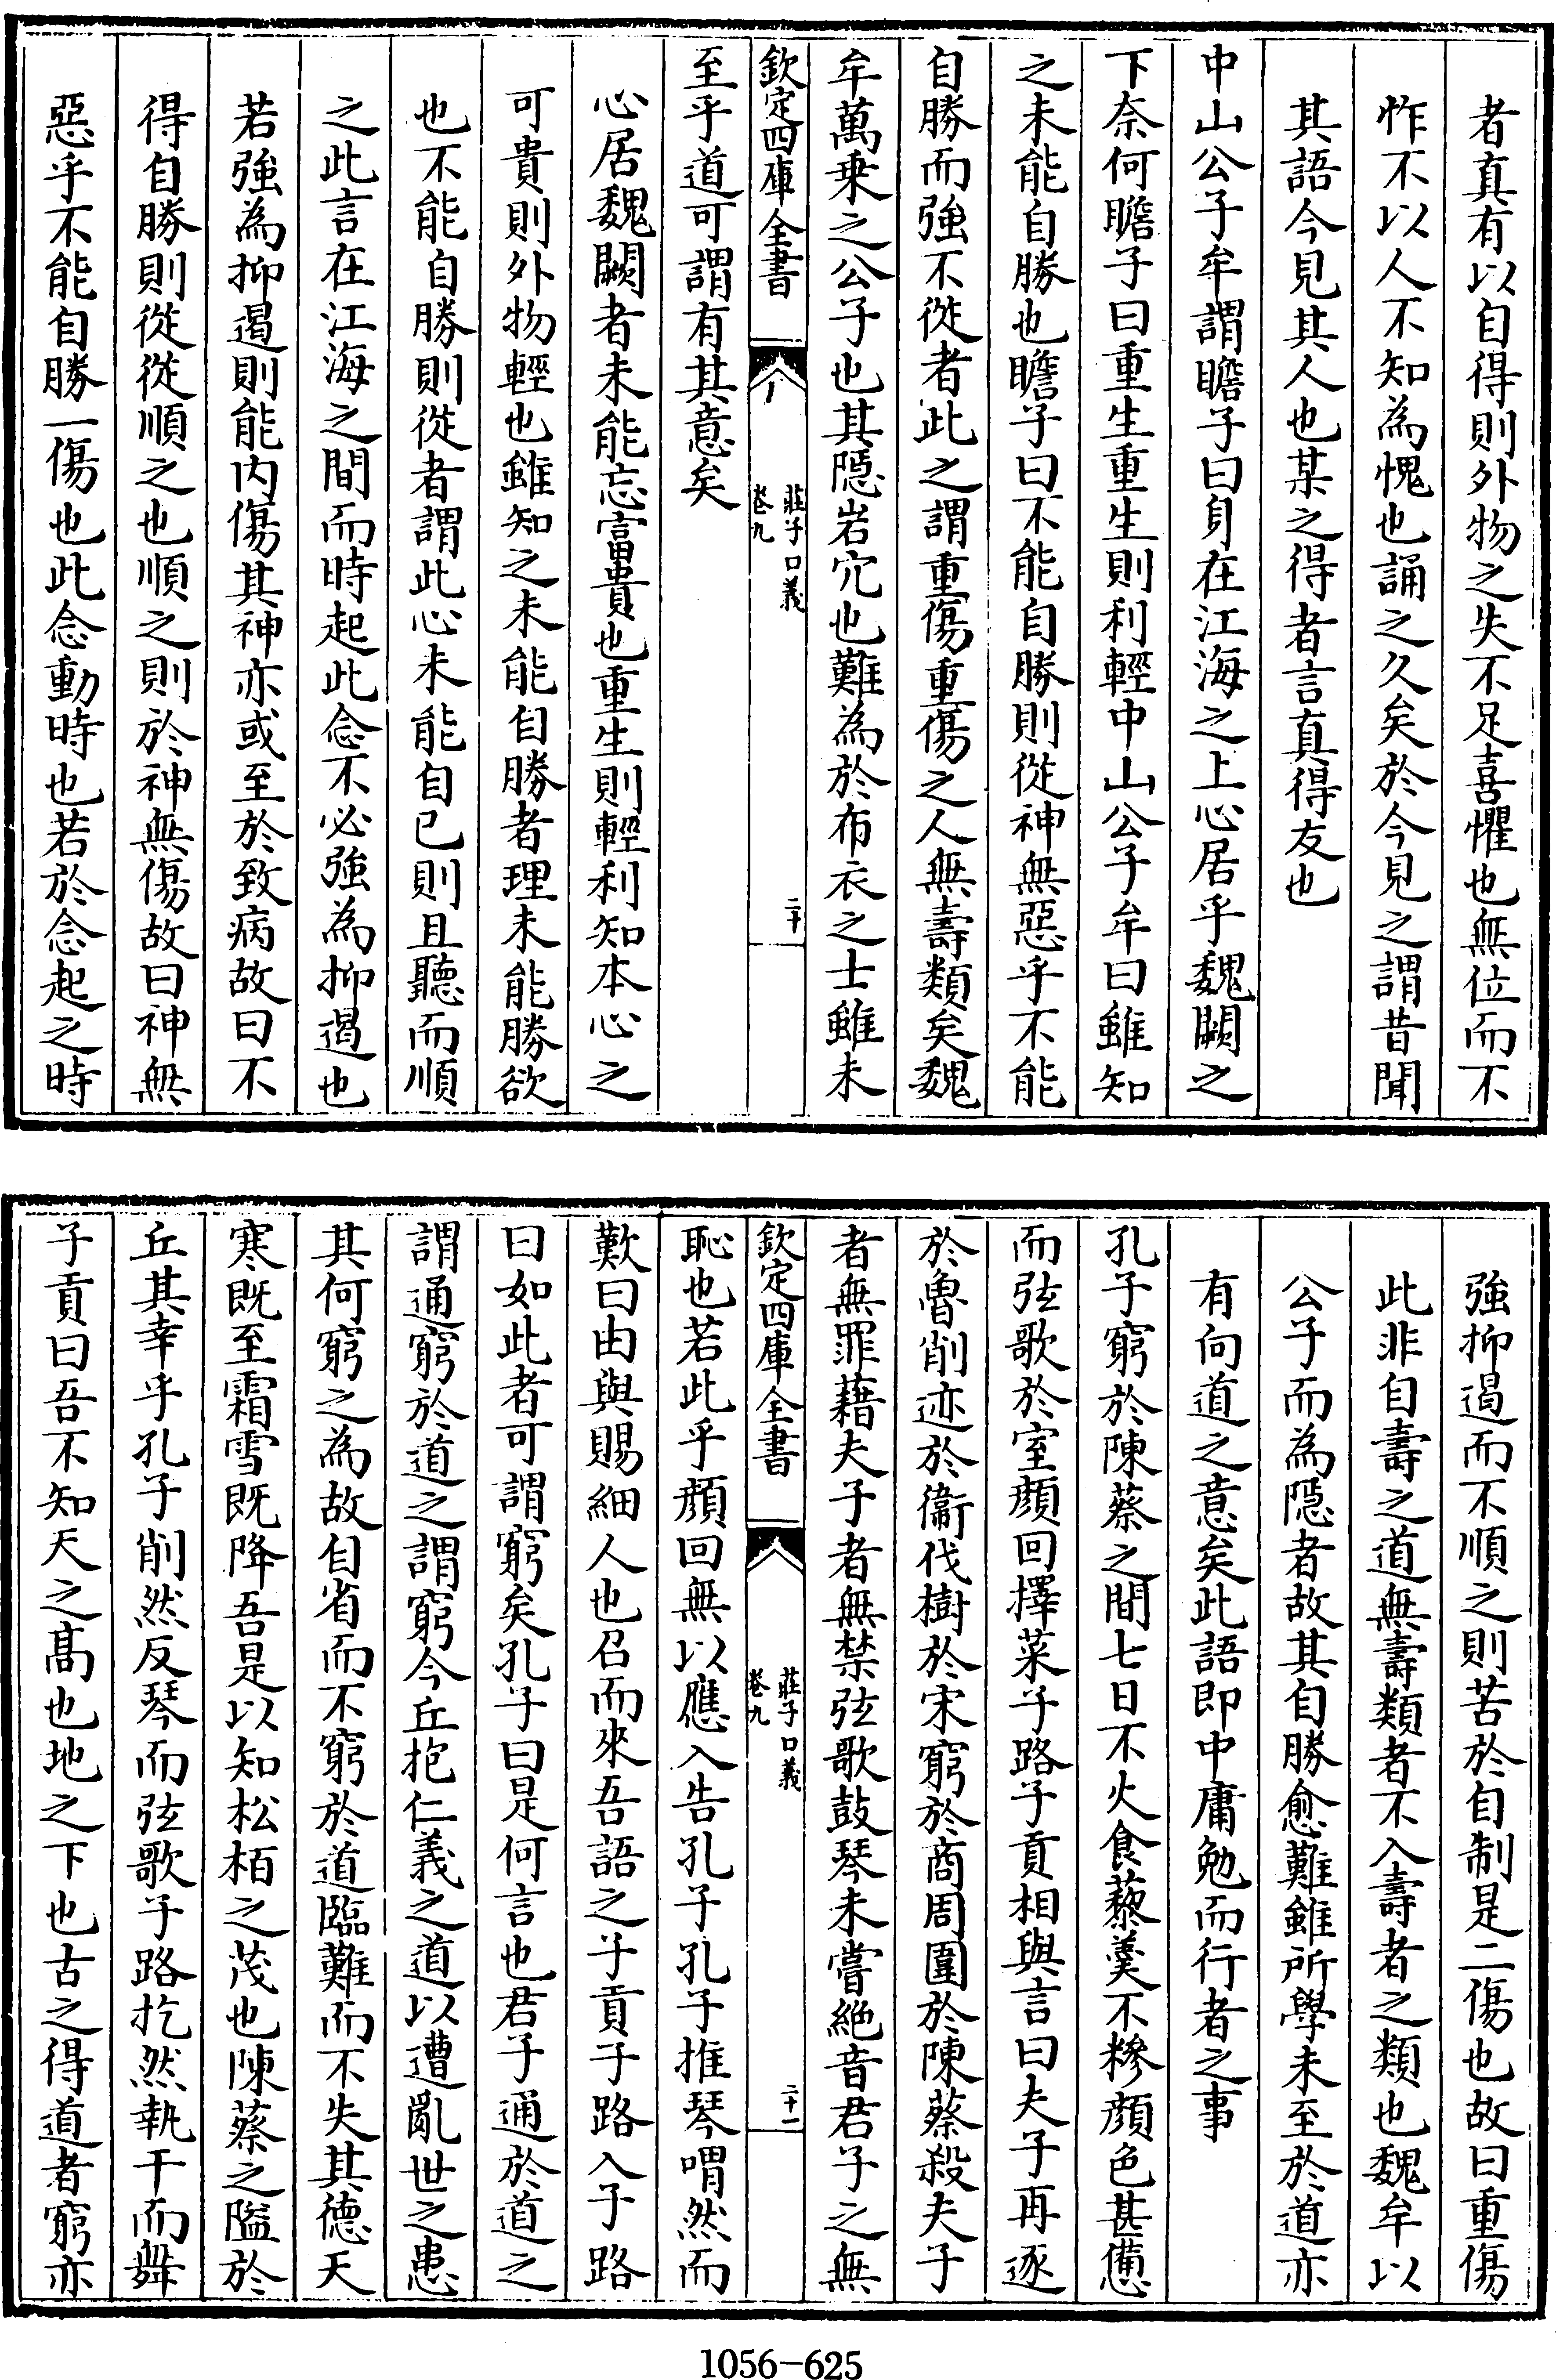 者真有以自得則外物之失不足喜懼也無位而不
怍不以人不知為愧也誦之久矣於今見之謂昔聞
其語今見其人也某之得者言真得友也
中山公子牟謂瞻子曰身在江海之上心居乎魏闕之
下奈何瞻子曰重生重生則利輕中山公子牟曰雖知
之未能自勝也瞻子曰不能自勝則從神無惡乎不能
自勝而強不從者此之謂重傷重傷之人無壽類矣魏
牟萬乗之公子也其隠岩穴也難為於布衣之士雖未
欽定四庫全書
莊子口義
卷九
二十
至乎道可謂有其意矣
心居魏闕者未能忘富貴也重生則輕利知本心之
可貴則外物輕也雖知之未能自勝者理未能勝欲
也不能自勝則從者謂此心未能自已則且聽而順
之此言在江海之間而時起此念不必強為抑遏也
若強為抑遏則能内傷其神亦或至於致病故曰不
得自勝則從從順之也順之則於神無傷故曰神無
惡乎不能自勝一傷也此念動時也若於念起之時
強抑遏而不順之則苦於自制是二傷也故曰重傷
此非自壽之道無壽類者不入壽者之類也魏牟以
公子而為隠者故其自勝愈難雖所學未至於道亦
有向道之意矣此語即中庸勉而行者之事
孔子窮於陳蔡之間七日不火食藜羹不糝顔色甚憊
而弦歌於室顔回擇菜子路子貢相與言曰夫子再逐
於魯削迹於衞伐樹於宋窮於商周圍於陳蔡殺夫子
者無罪藉夫子者無禁弦歌鼓琴未嘗絶音君子之無
欽定四庫全書
莊子口義
卷九
二十一
恥也若此乎顔回無以應入告孔子孔子推琴喟然而
歎曰由與賜細人也召而來吾語之子貢子路入子路
曰如此者可謂窮矣孔子曰是何言也君子通於道之
謂通窮於道之謂窮今丘抱仁義之道以遭亂世之患
其何窮之為故自省而不窮於道臨難而不失其德天
寒既至霜雪既降吾是以知松栢之茂也陳蔡之隘於
丘其幸乎孔子削然反琴而弦歌子路扢然執干而舞
子貢曰吾不知天之髙也地之下也古之得道者窮亦
1056-625